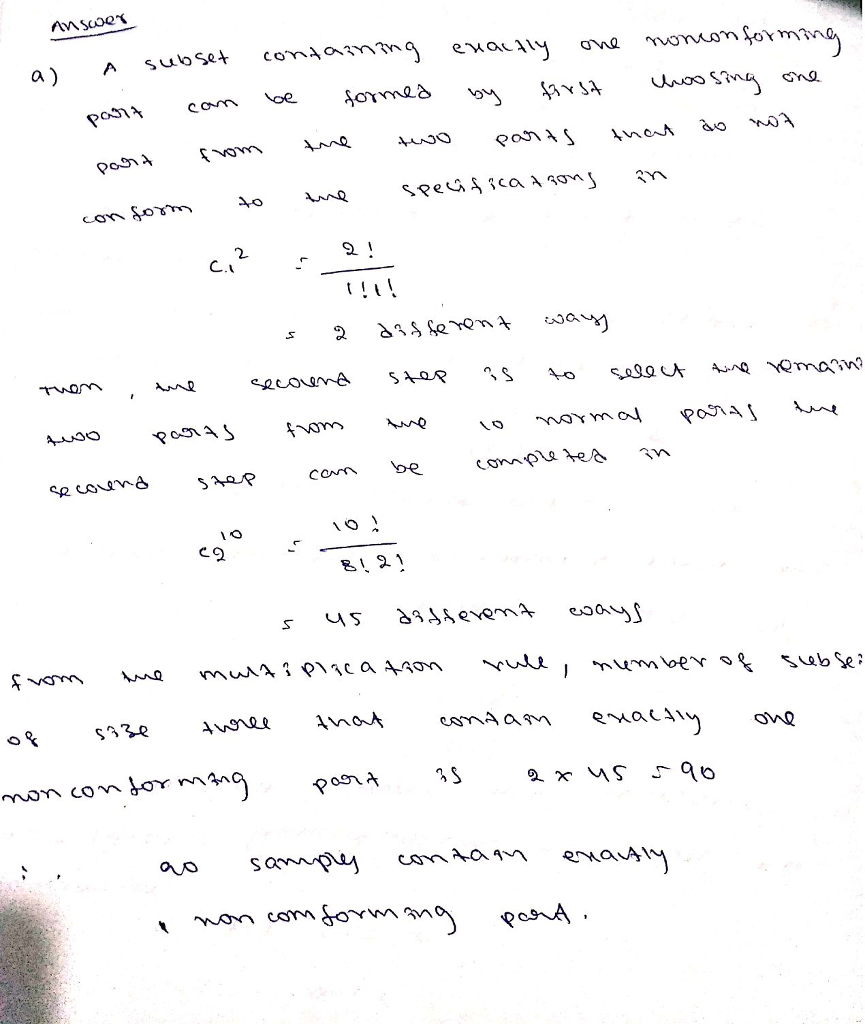 Answer
a) A subset containing exactly one nonconforming
part can be formed by first choosing one
part from the two parts that do not
conform to the specifications in
C₁² = 2! / 1!1!
= 2 different ways
Then, the secound step is to select the remain
two parts from the 10 normal parts the
secound step can be completed in
C₂¹⁰ = 10! / 8!2!
= 45 different ways
from the multiplication rule, number of subse
of size three that contain exactly one
nonconforming part is 2 × 45 = 90
∴ 90 samples contain exactly
1 non comforming part.